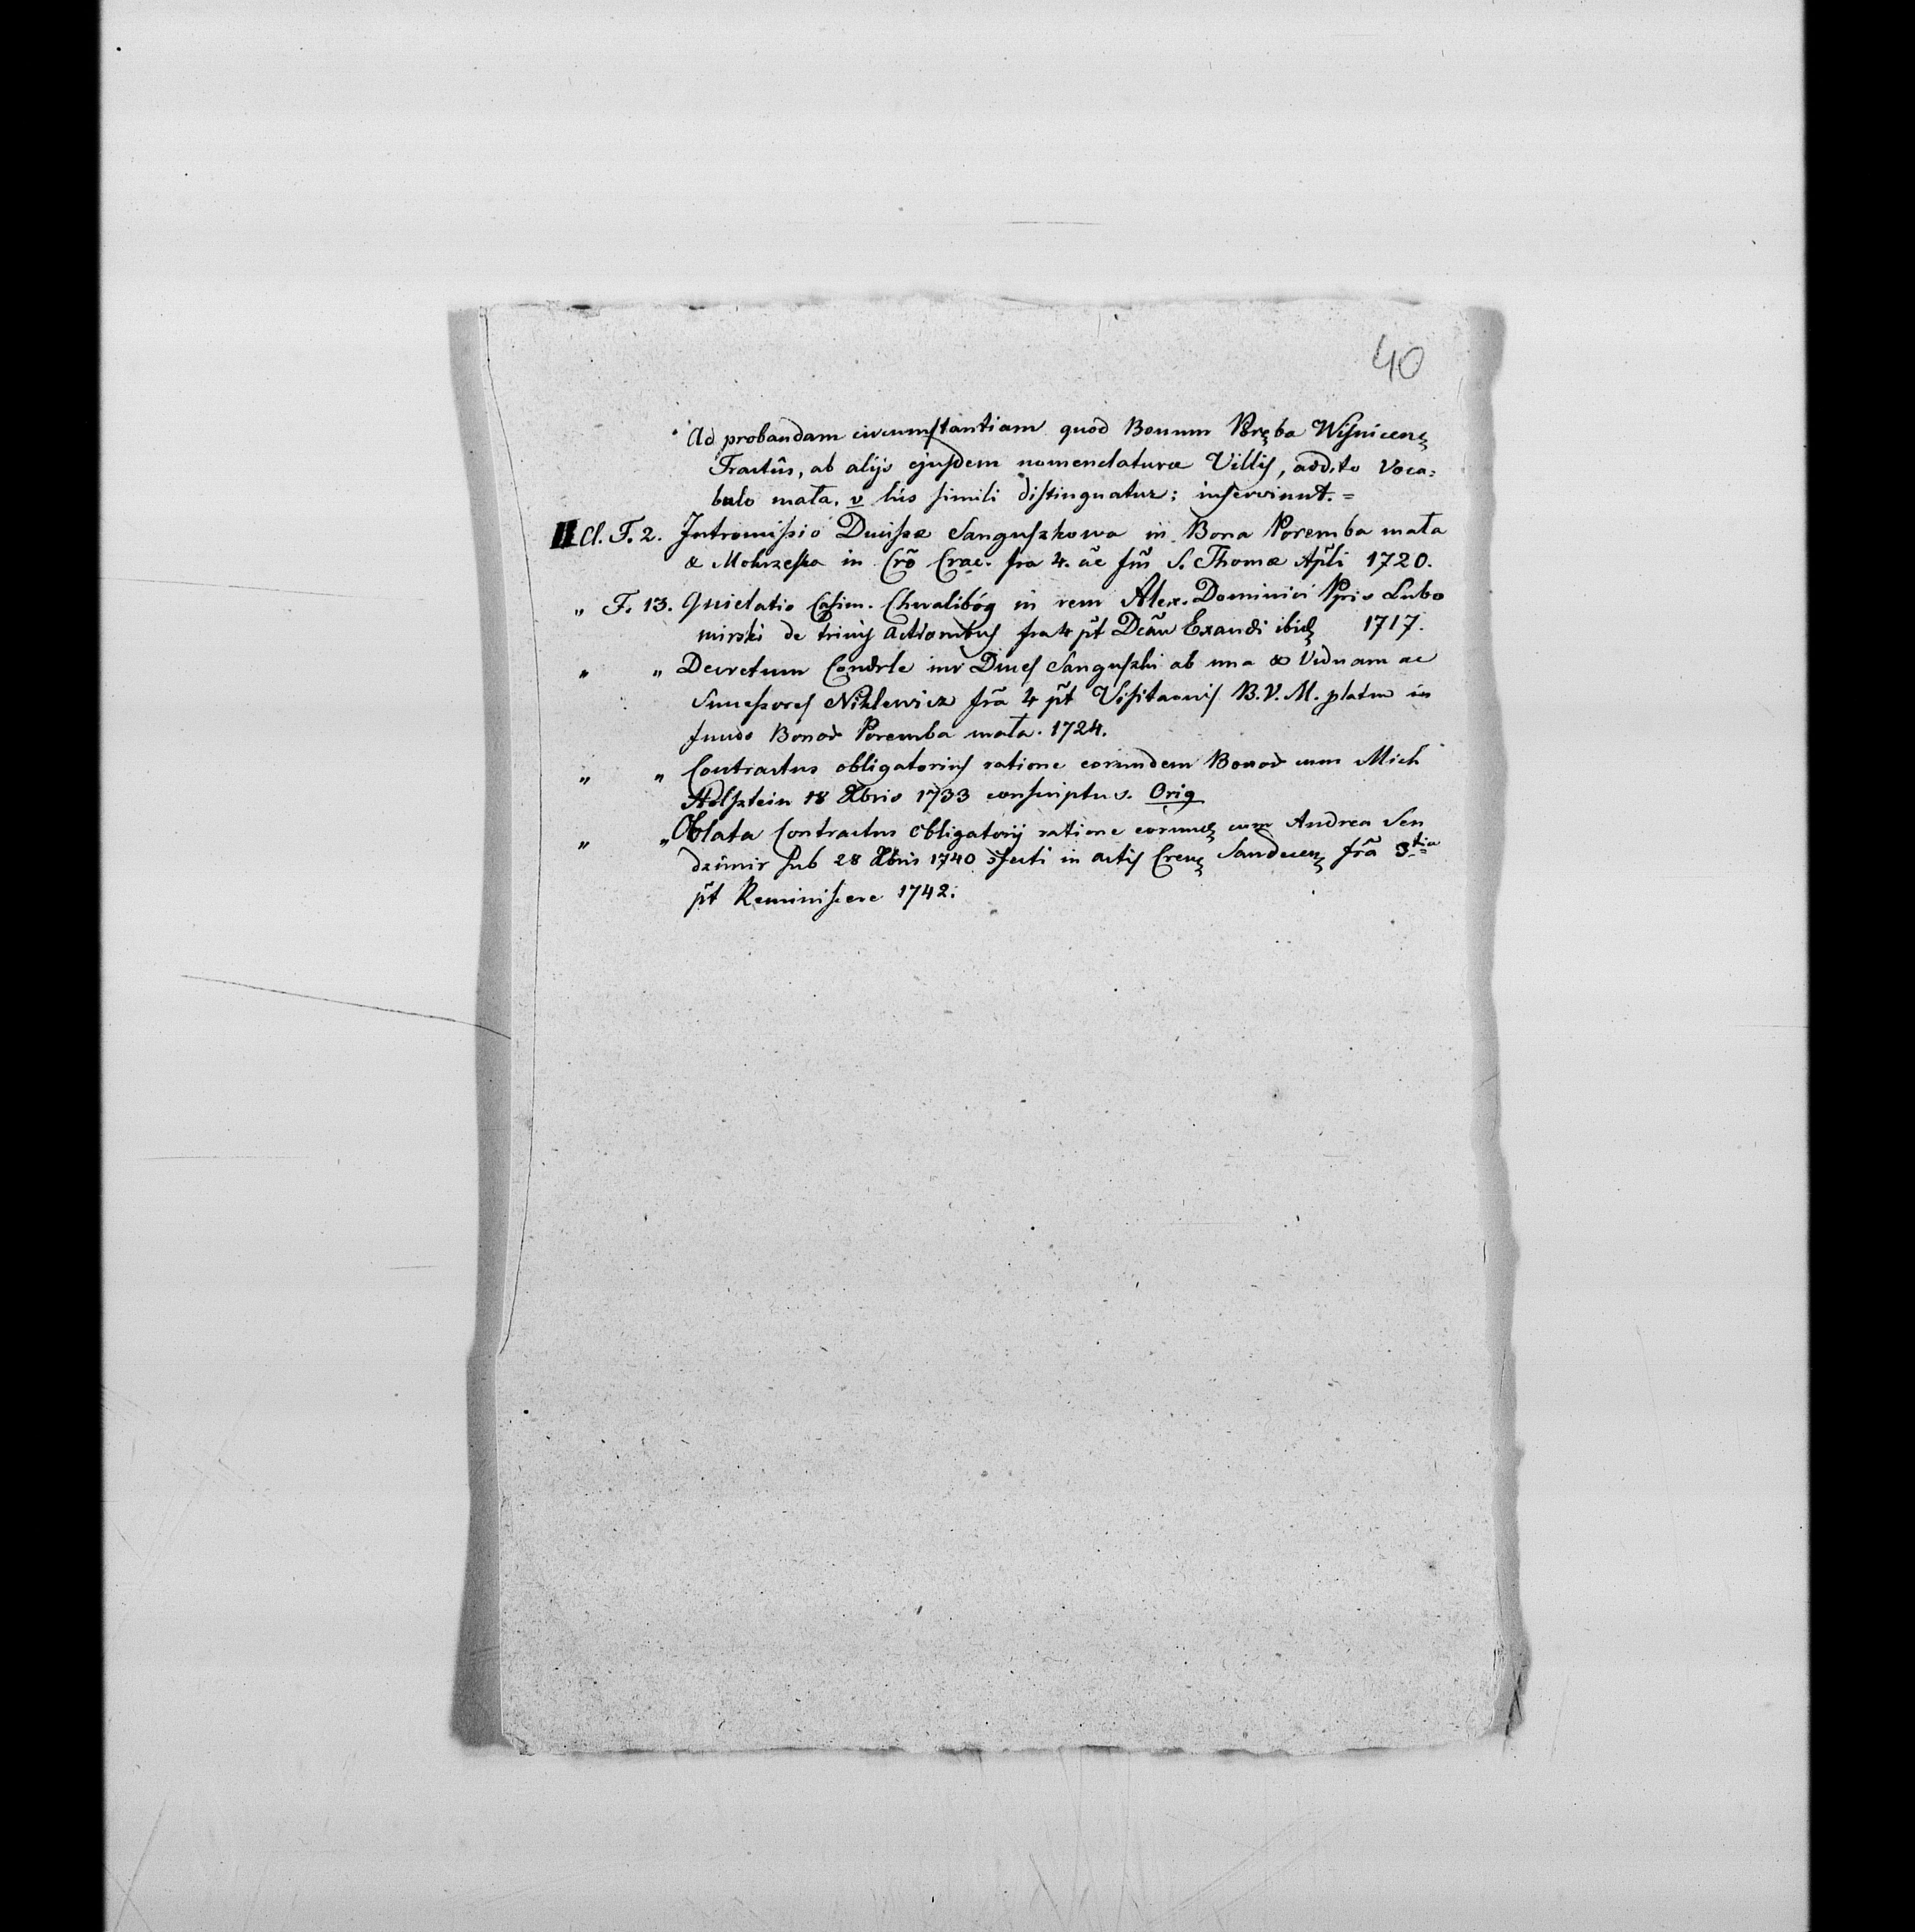 40
Ad probandam circumstantiam quod Bonum Poręba Wisnicens
Tractûs, ab alijs ejusdem nomenclaturæ Villis, addito Voca=
bulo mała, v his simili distinguatur; inserviunt. =
II Cl. F. 2. Intromissio Ducissæ Sanguszkowa in Bona Poremba mała
& Mokrzeska in Crõ Crac. fra 4. ãe fm̃ S. Thomæ Apl̃i 1720.
„ F. 13. Quietatio Casim. Chwalibóg in rem Alex. Dominici Ppis Lubo
mirski de trinis actionibus fra 4 p̃t Dcãm Exaudi ibid 1717.
„ „ Decretum Condrle inr Duces Sanguszki ab una & Viduam ac
Successores Niklewicz frã 4 p̃t Visitaonis B. V. M. platm in
fundo Bonor Poremba mała. 1724.
„ „ Contractus obligatorius ratione eorundem Bonor cum Mich
Holsztein 18 Xbris 1733 conscriptus. Orig
„ „ Oblata Contractus obligatorij ratione eorund cum Andrea Sen
dzimir sub 28 Xbris 1740 in actis Cren Sandecen frã 3tia
p̃t Reminiscere 1742.